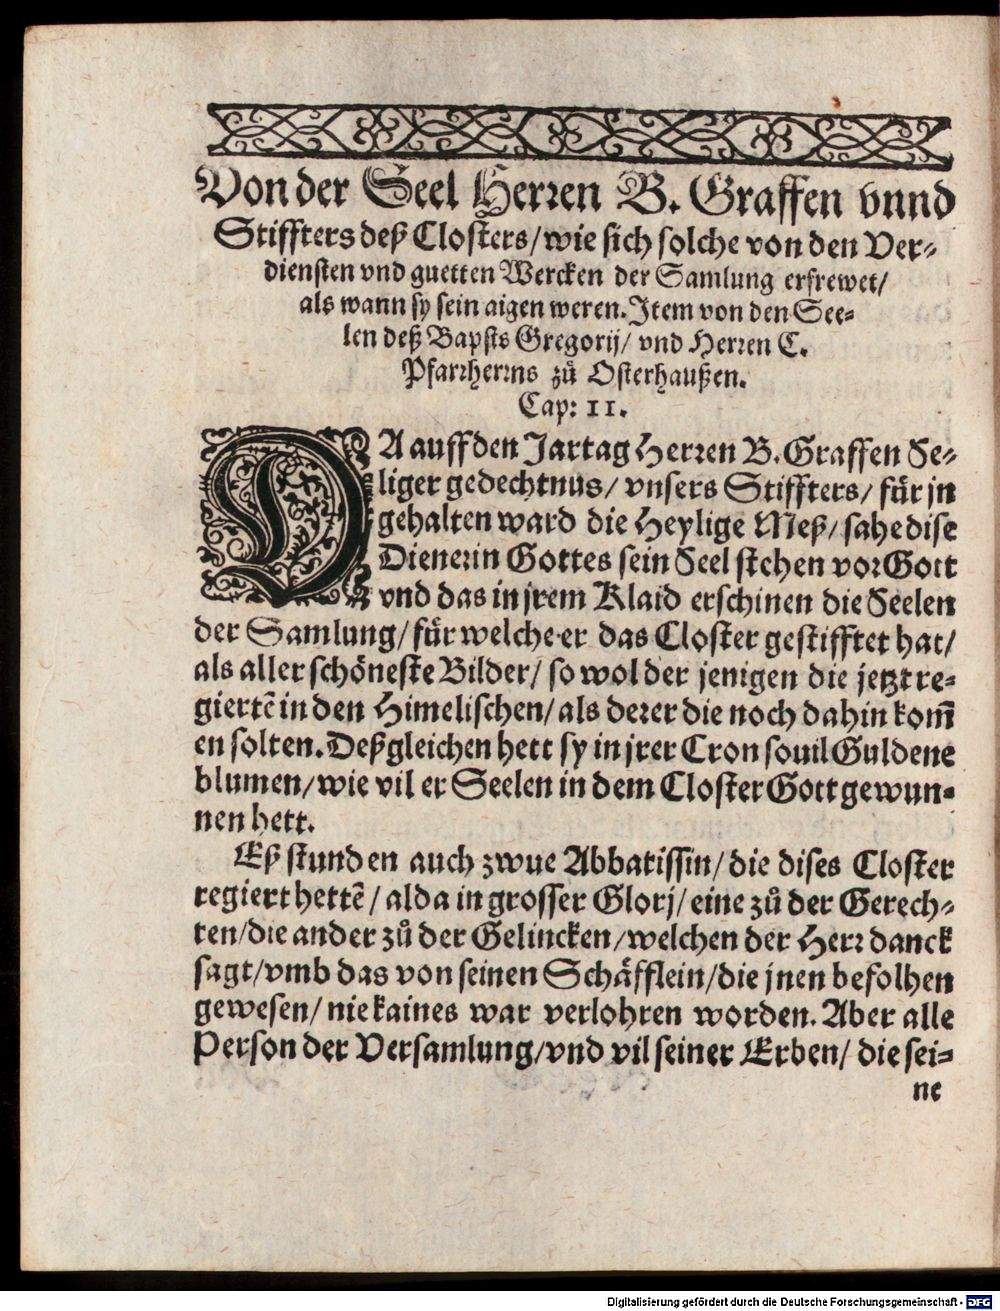 Von der Seel Herren B. Graffen vnnd
Stiffters deß Closters/ wie sich solche von den Ver-
diensten vnd guetten Wercken der Samlung erfrewet/
als wann sy sein aigen weren. Item von den See-
len deß Bapsts Gregorij/ vnd Herren C.
Pfarrherrns zů Osterhaußen.
Cap: 11.
DA auff den Jartag Herren B. Graffen Se-
liger gedechtnus/ vnsers Stiffters/ für jn
gehalten ward die Heylige Meß/ sahe dise
Dienerin Gottes sein Seel stehen vor Gott
vnd das in jrem Klaid erschinen die Seelen
der Samlung/ für welche er das Closter gestifftet hat/
als aller schöneste Bilder/ so wol der jenigen die jetzt re-
giertē in den Himelischen/ als derer die noch dahin kom̄
en solten. Deßgleichen hett sy in jrer Cron souil Guldene
blumen/ wie vil er Seelen in dem Closter Gott gewun-
nen hett.
Eß stunden auch zwue Abbatissin/ die dises Closter
regiert hettē/ alda in grosser Glorj/ eine zů der Gerech-
ten/ die ander zů der Gelincken/ welchen der Herr danck
sagt/ vmb das von seinen Schäfflein/ die jnen befolhen
gewesen/ nie kaines war verlohren worden. Aber alle
Person der Versamlung/ vnd vil seiner Erben/ die sei-
ne
Digitalisierung gefördert durch die Deutsche Forschungsgemeinschaft - DFG